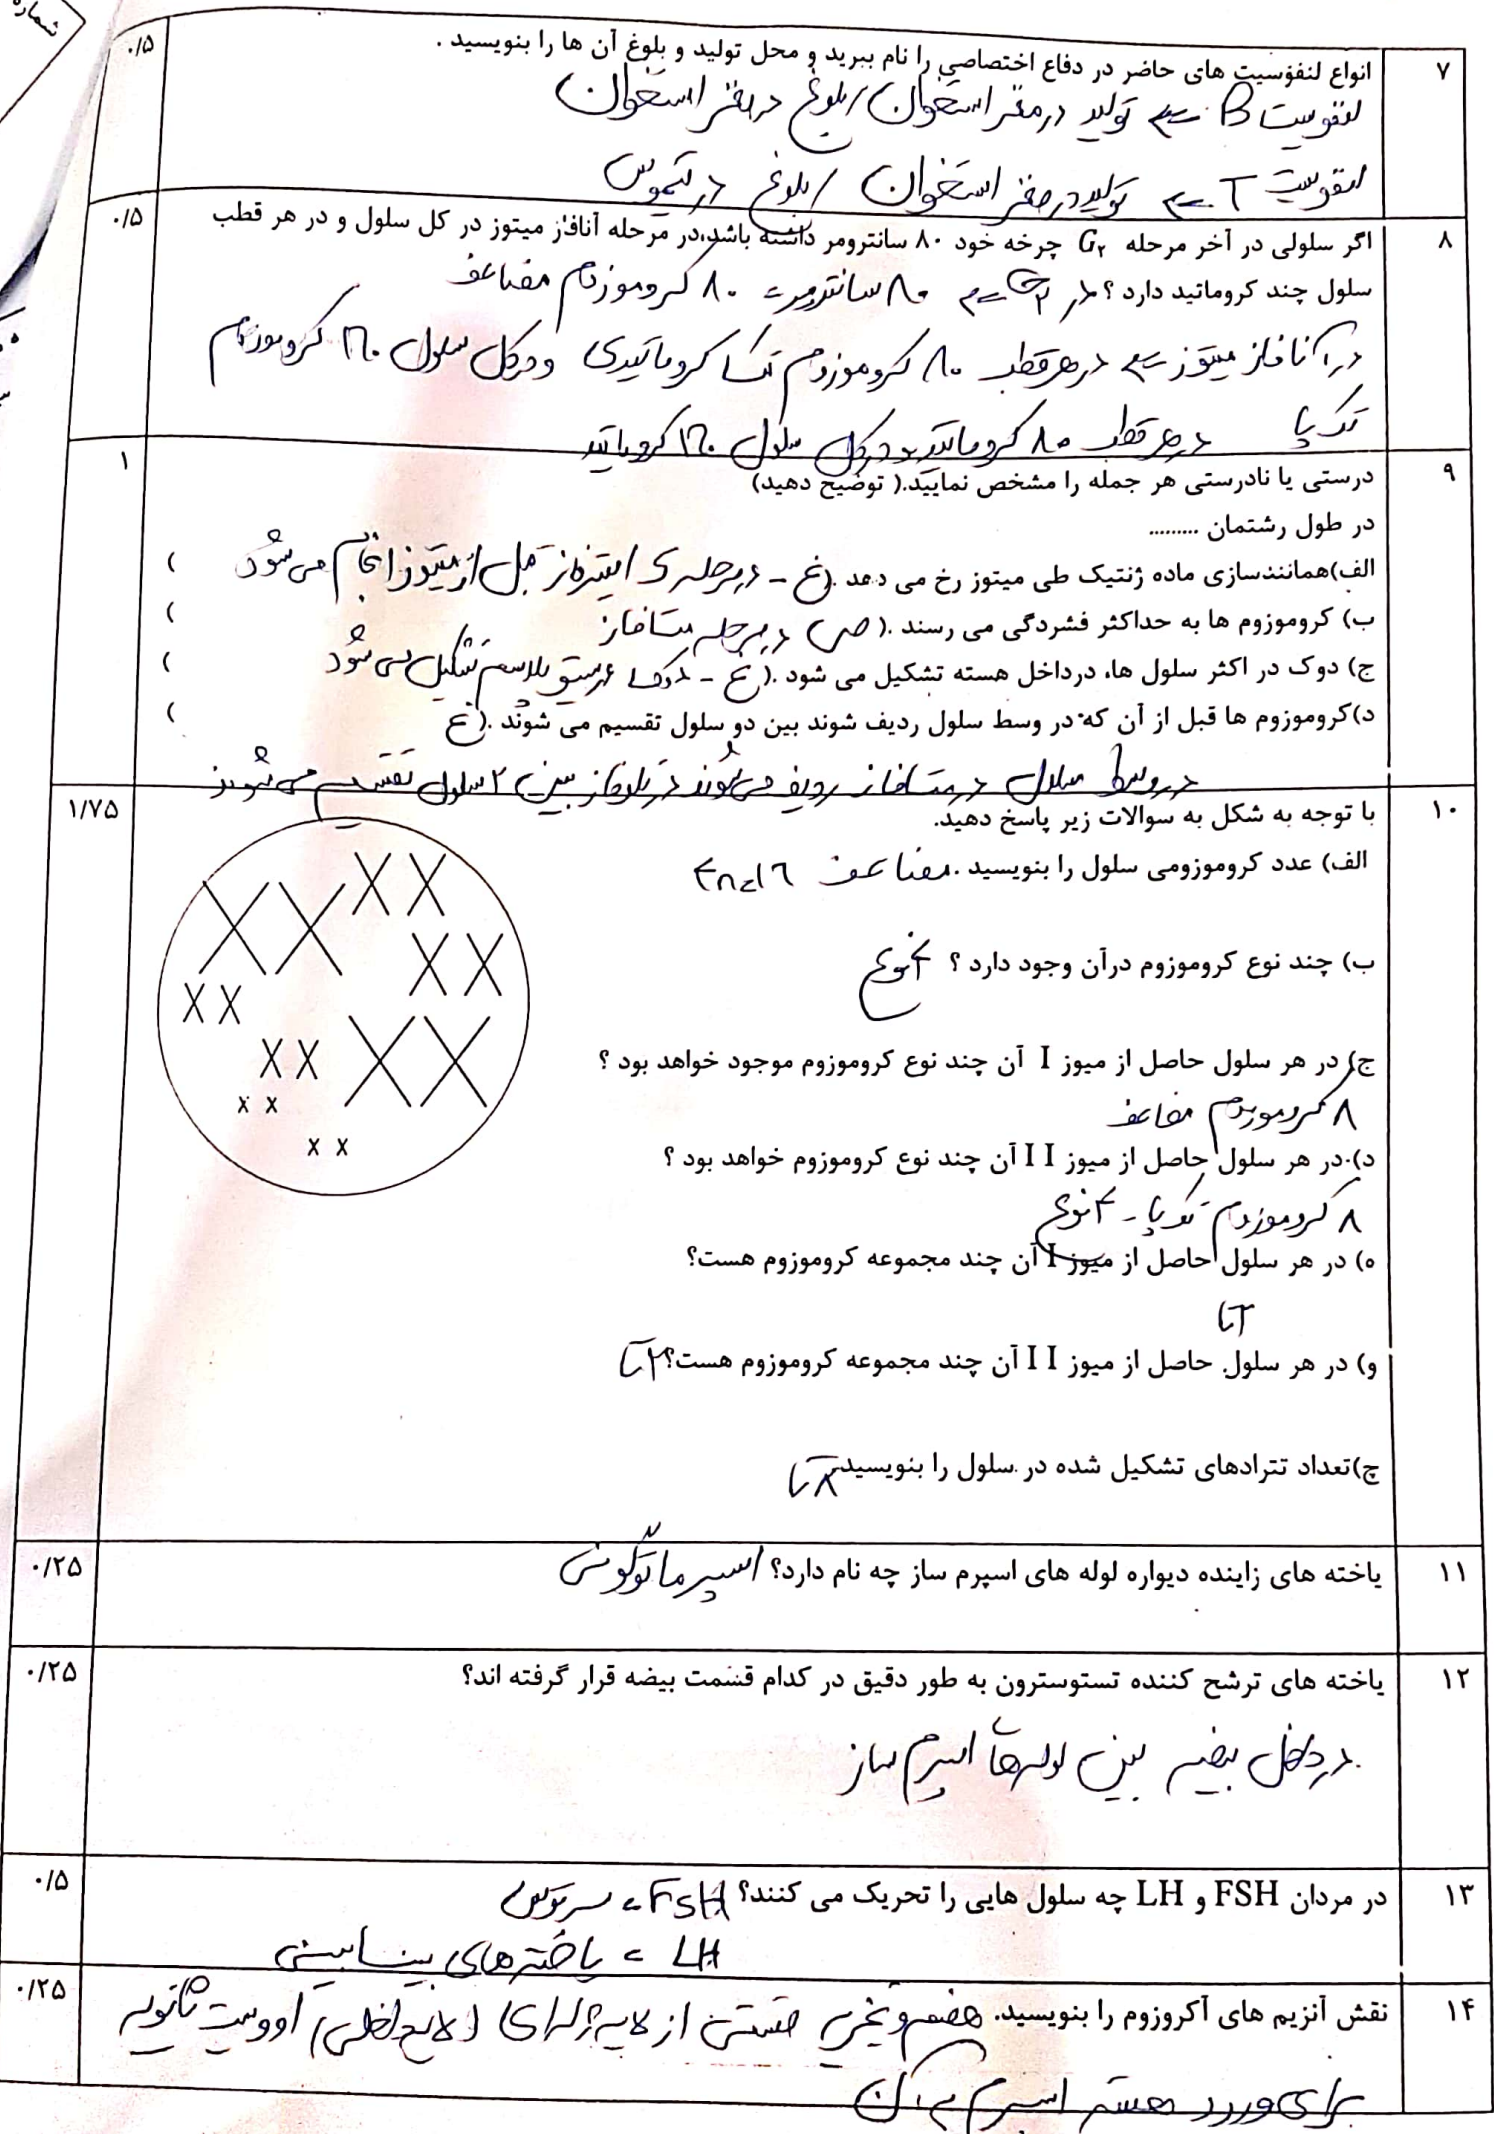 شماره
۷
انواع لنفوسیت های حاضر در دفاع اختصاصی را نام ببرید و محل تولید و بلوغ آن ها را بنویسید .
۰/۵
لنفوسیت B ⇐ تولید در مغز استخوان / بلوغ در مغز استخوان
لنفوسیت T ⇐ تولید در مغز استخوان / بلوغ در تیموس
۸
اگر سلولی در آخر مرحله G۲ چرخه خود ۸۰ سانترومر داشته باشد،در مرحله آنافاز میتوز در کل سلول و در هر قطب
۰/۵
سلول چند کروماتید دارد ؟ در G۲ ⇐ ۸۰ سانترومر = ۸۰ کروموزوم مضاعف
در آنافاز میتوز ⇐ در هر قطب ۸۰ کروموزوم تک کروماتیدی و در کل سلول ۱۶۰ کروموزوم
تک پا در هر قطب ۸۰ کروماتید و در کل سلول ۱۶۰ کروماتید
۹
درستی یا نادرستی هر جمله را مشخص نمایید.( توضیح دهید)
۱
در طول رشتمان .........
الف)همانندسازی ماده ژنتیک طی میتوز رخ می دهد .(غ - در مرحله ی اینترفاز قبل از میتوز انجام می شود )
ب) کروموزوم ها به حداکثر فشردگی می رسند .( ص در مرحله متافاز )
ج) دوک در اکثر سلول ها، درداخل هسته تشکیل می شود .( غ - دوک در سیتوپلاسم تشکیل می شود )
د)کروموزوم ها قبل از آن که در وسط سلول ردیف شوند بین دو سلول تقسیم می شوند .( غ )
در وسط سلول در متافاز ردیف می شوند در تلوفاز بین ۲ سلول تقسیم می شوند
۱۰
با توجه به شکل به سوالات زیر پاسخ دهید.
۱/۷۵
الف) عدد کروموزومی سلول را بنویسید . مضاعف ۴n=۱۶
ب) چند نوع کروموزوم درآن وجود دارد ؟ ۴ نوع
ج) در هر سلول حاصل از میوز I آن چند نوع کروموزوم موجود خواهد بود ؟
۸ کروموزوم مضاعف
د) در هر سلول حاصل از میوز I I آن چند نوع کروموزوم خواهد بود ؟
۸ کروموزوم تک پا - ۴ نوع
ه) در هر سلول حاصل از میوز I آن چند مجموعه کروموزوم هست؟
۲ تا
و) در هر سلول حاصل از میوز I I آن چند مجموعه کروموزوم هست؟ ۲ تا
چ)تعداد تترادهای تشکیل شده در سلول را بنویسید ۸ تا
۱۱
یاخته های زاینده دیواره لوله های اسپرم ساز چه نام دارد؟ اسپرماتوگونی
۰/۲۵
۱۲
یاخته های ترشح کننده تستوسترون به طور دقیق در کدام قسمت بیضه قرار گرفته اند؟
۰/۲۵
در داخل بیضه بین لوله های اسپرم ساز
۱۳
در مردان FSH و LH چه سلول هایی را تحریک می کنند؟ FSH = سرتولی
۰/۵
LH = یاخته های بینابینی
۱۴
نقش آنزیم های آکروزوم را بنویسید. هضم و تخریب قسمتی از لایه ژله ای ( لایه داخلی) اووسیت ثانویه
۰/۲۵
برای ورود هسته اسپرم به آن